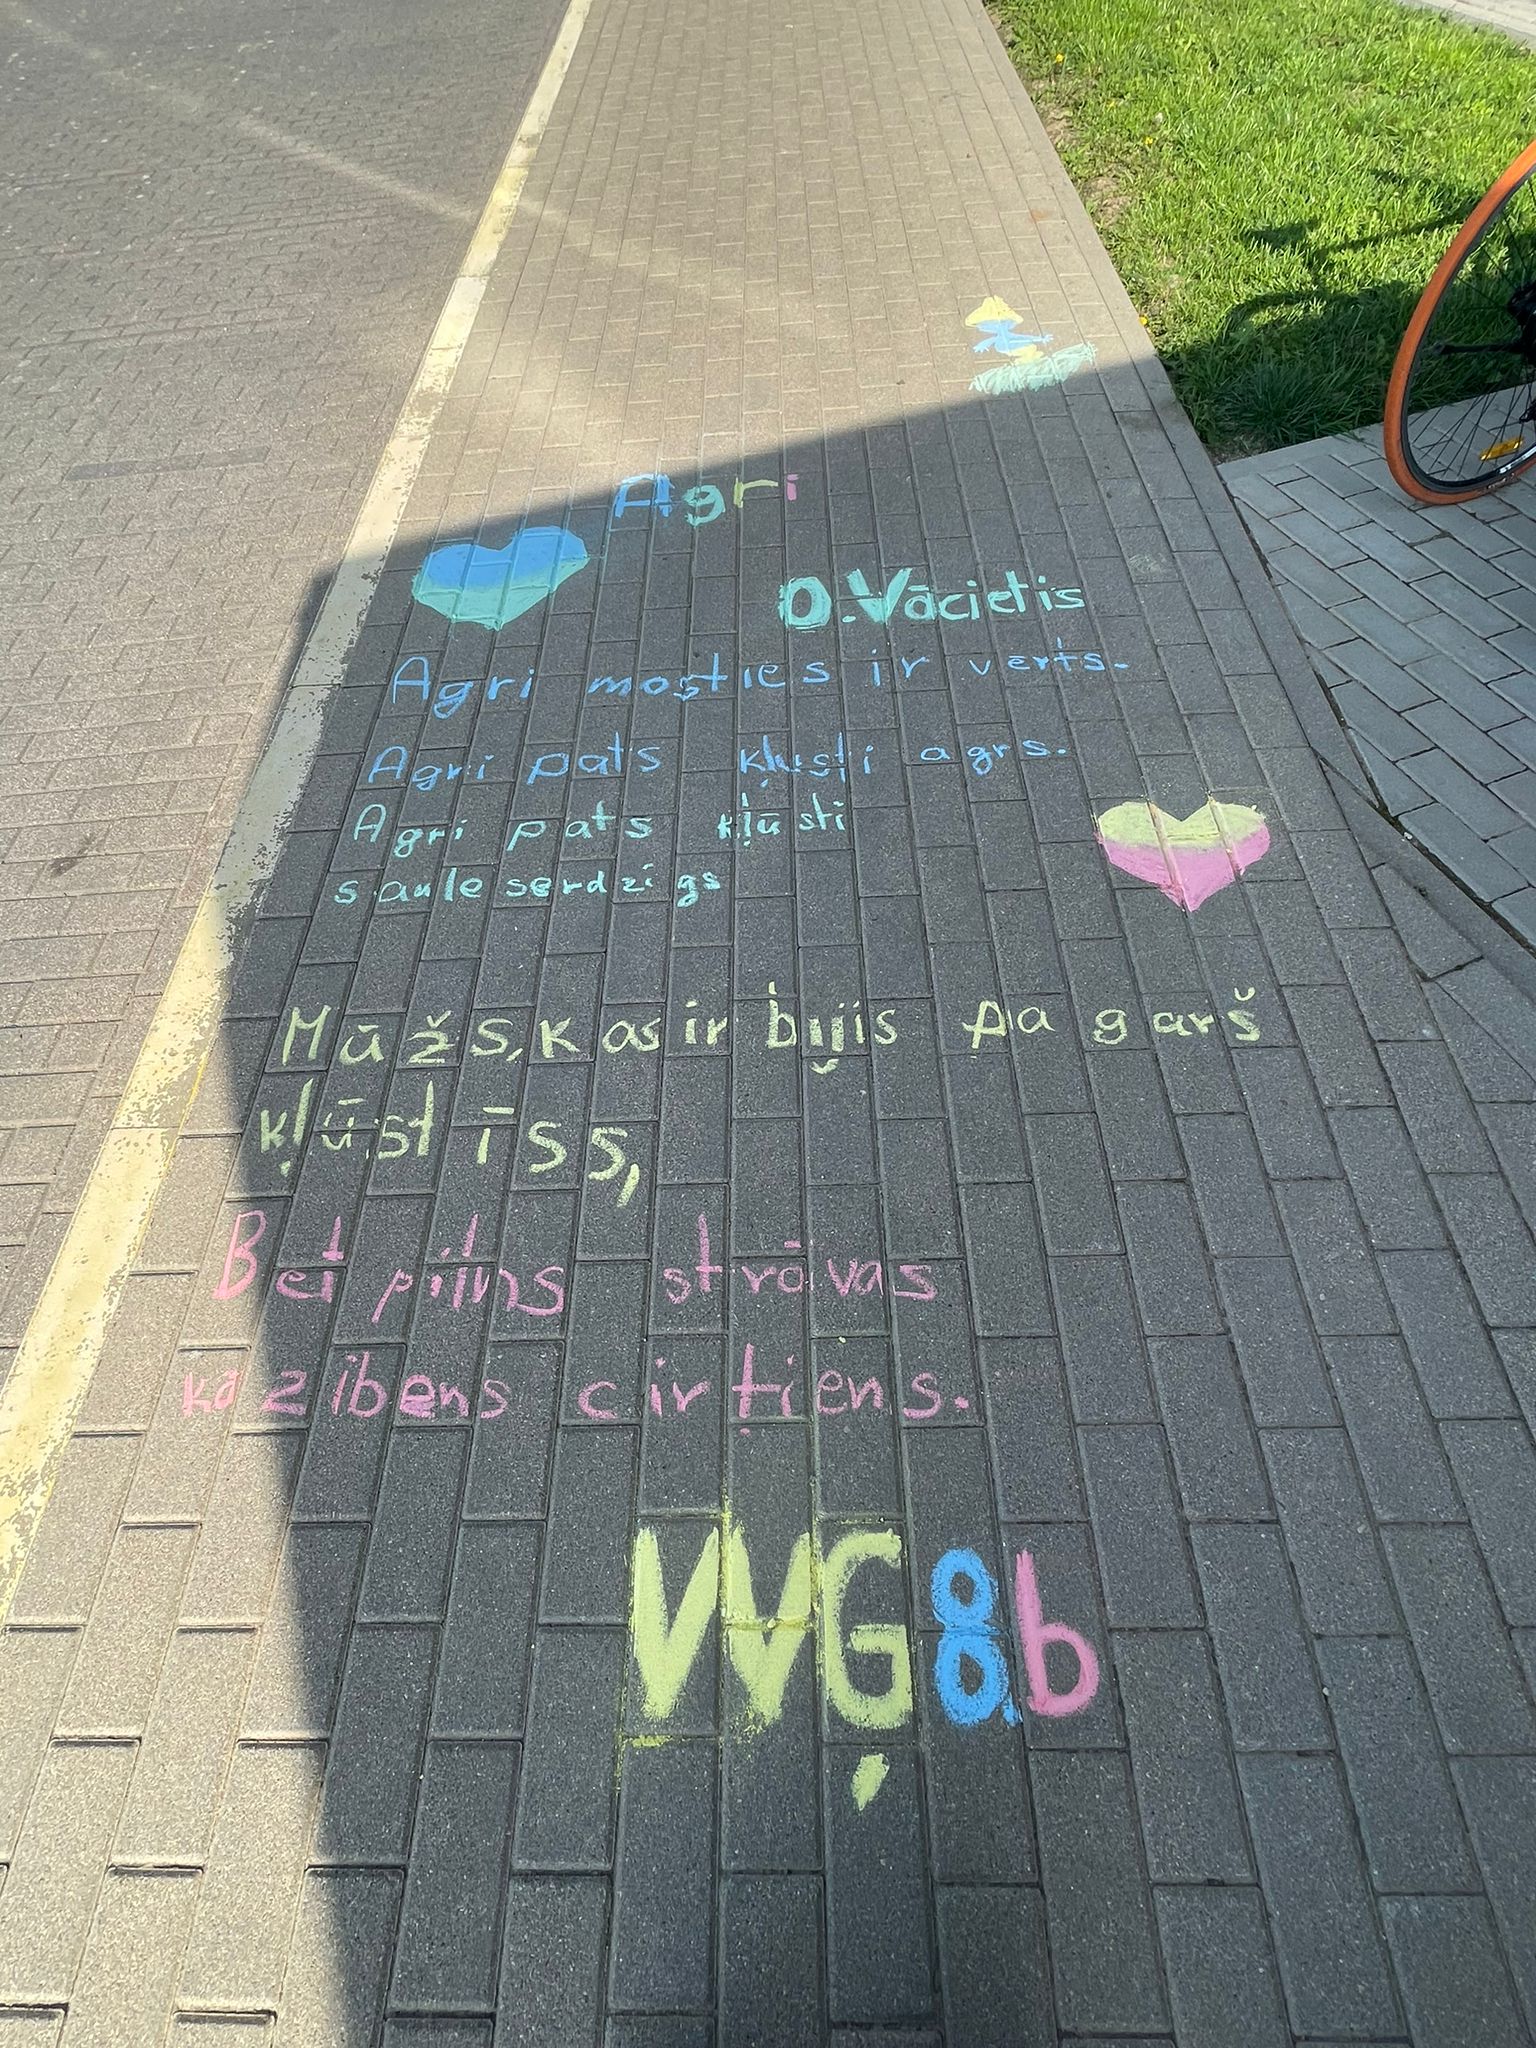 Agri
O.Vācietis
Agri mosties ir vērts.
Agri pats kļusti agrs.
Agri pats kļūsti
saulesserdzīgs
Mūžs, kas ir bijis pa garš
kļūst īss,
Bet pilns strāvas
kā zibens cirtiens.
VVĢ 8.b